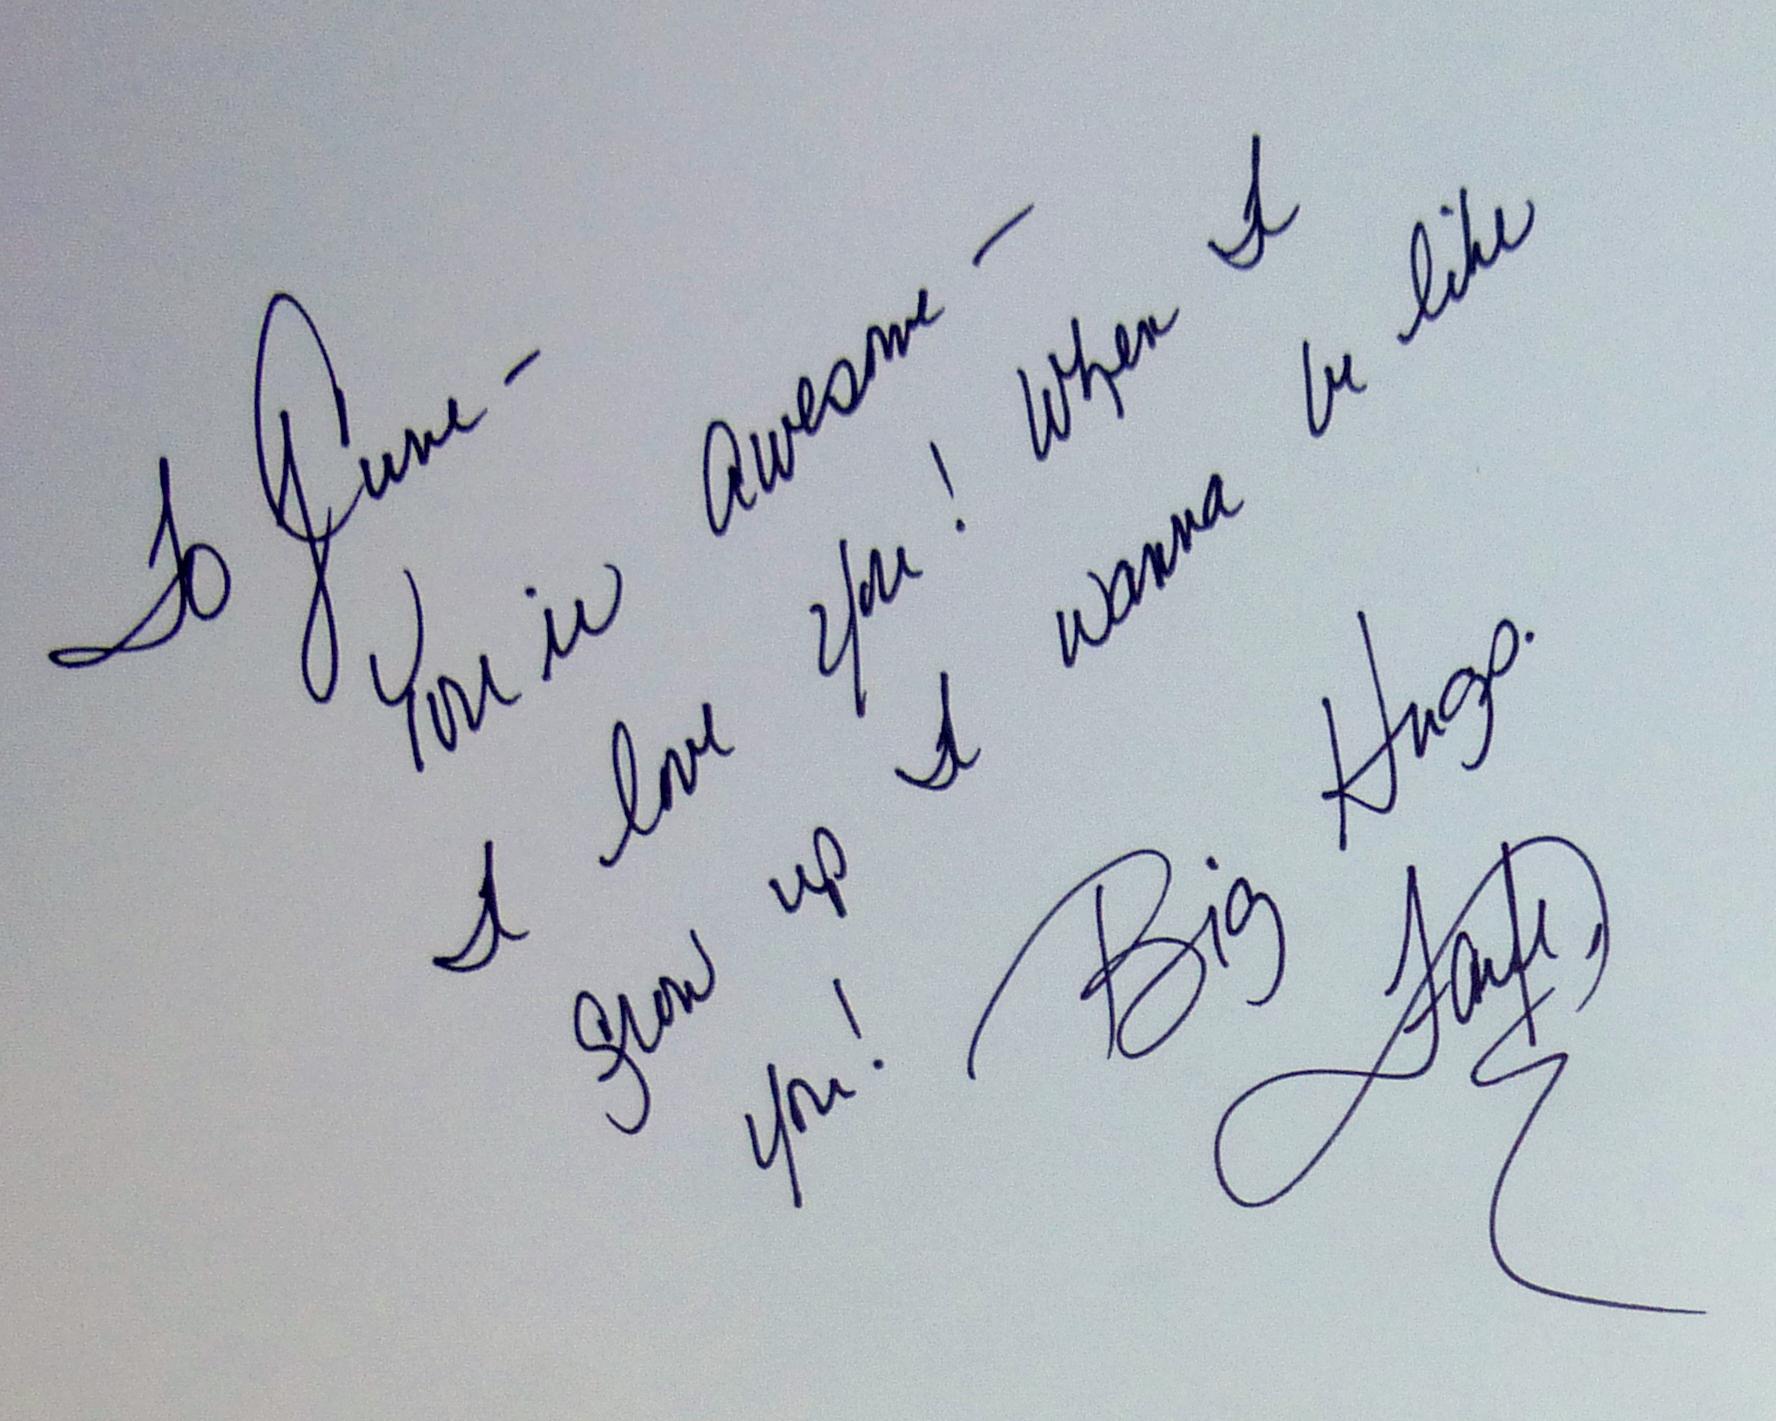 To June -
You is awesome -
I love you! When I
grow up I wanna be like
you! Big Hugs.